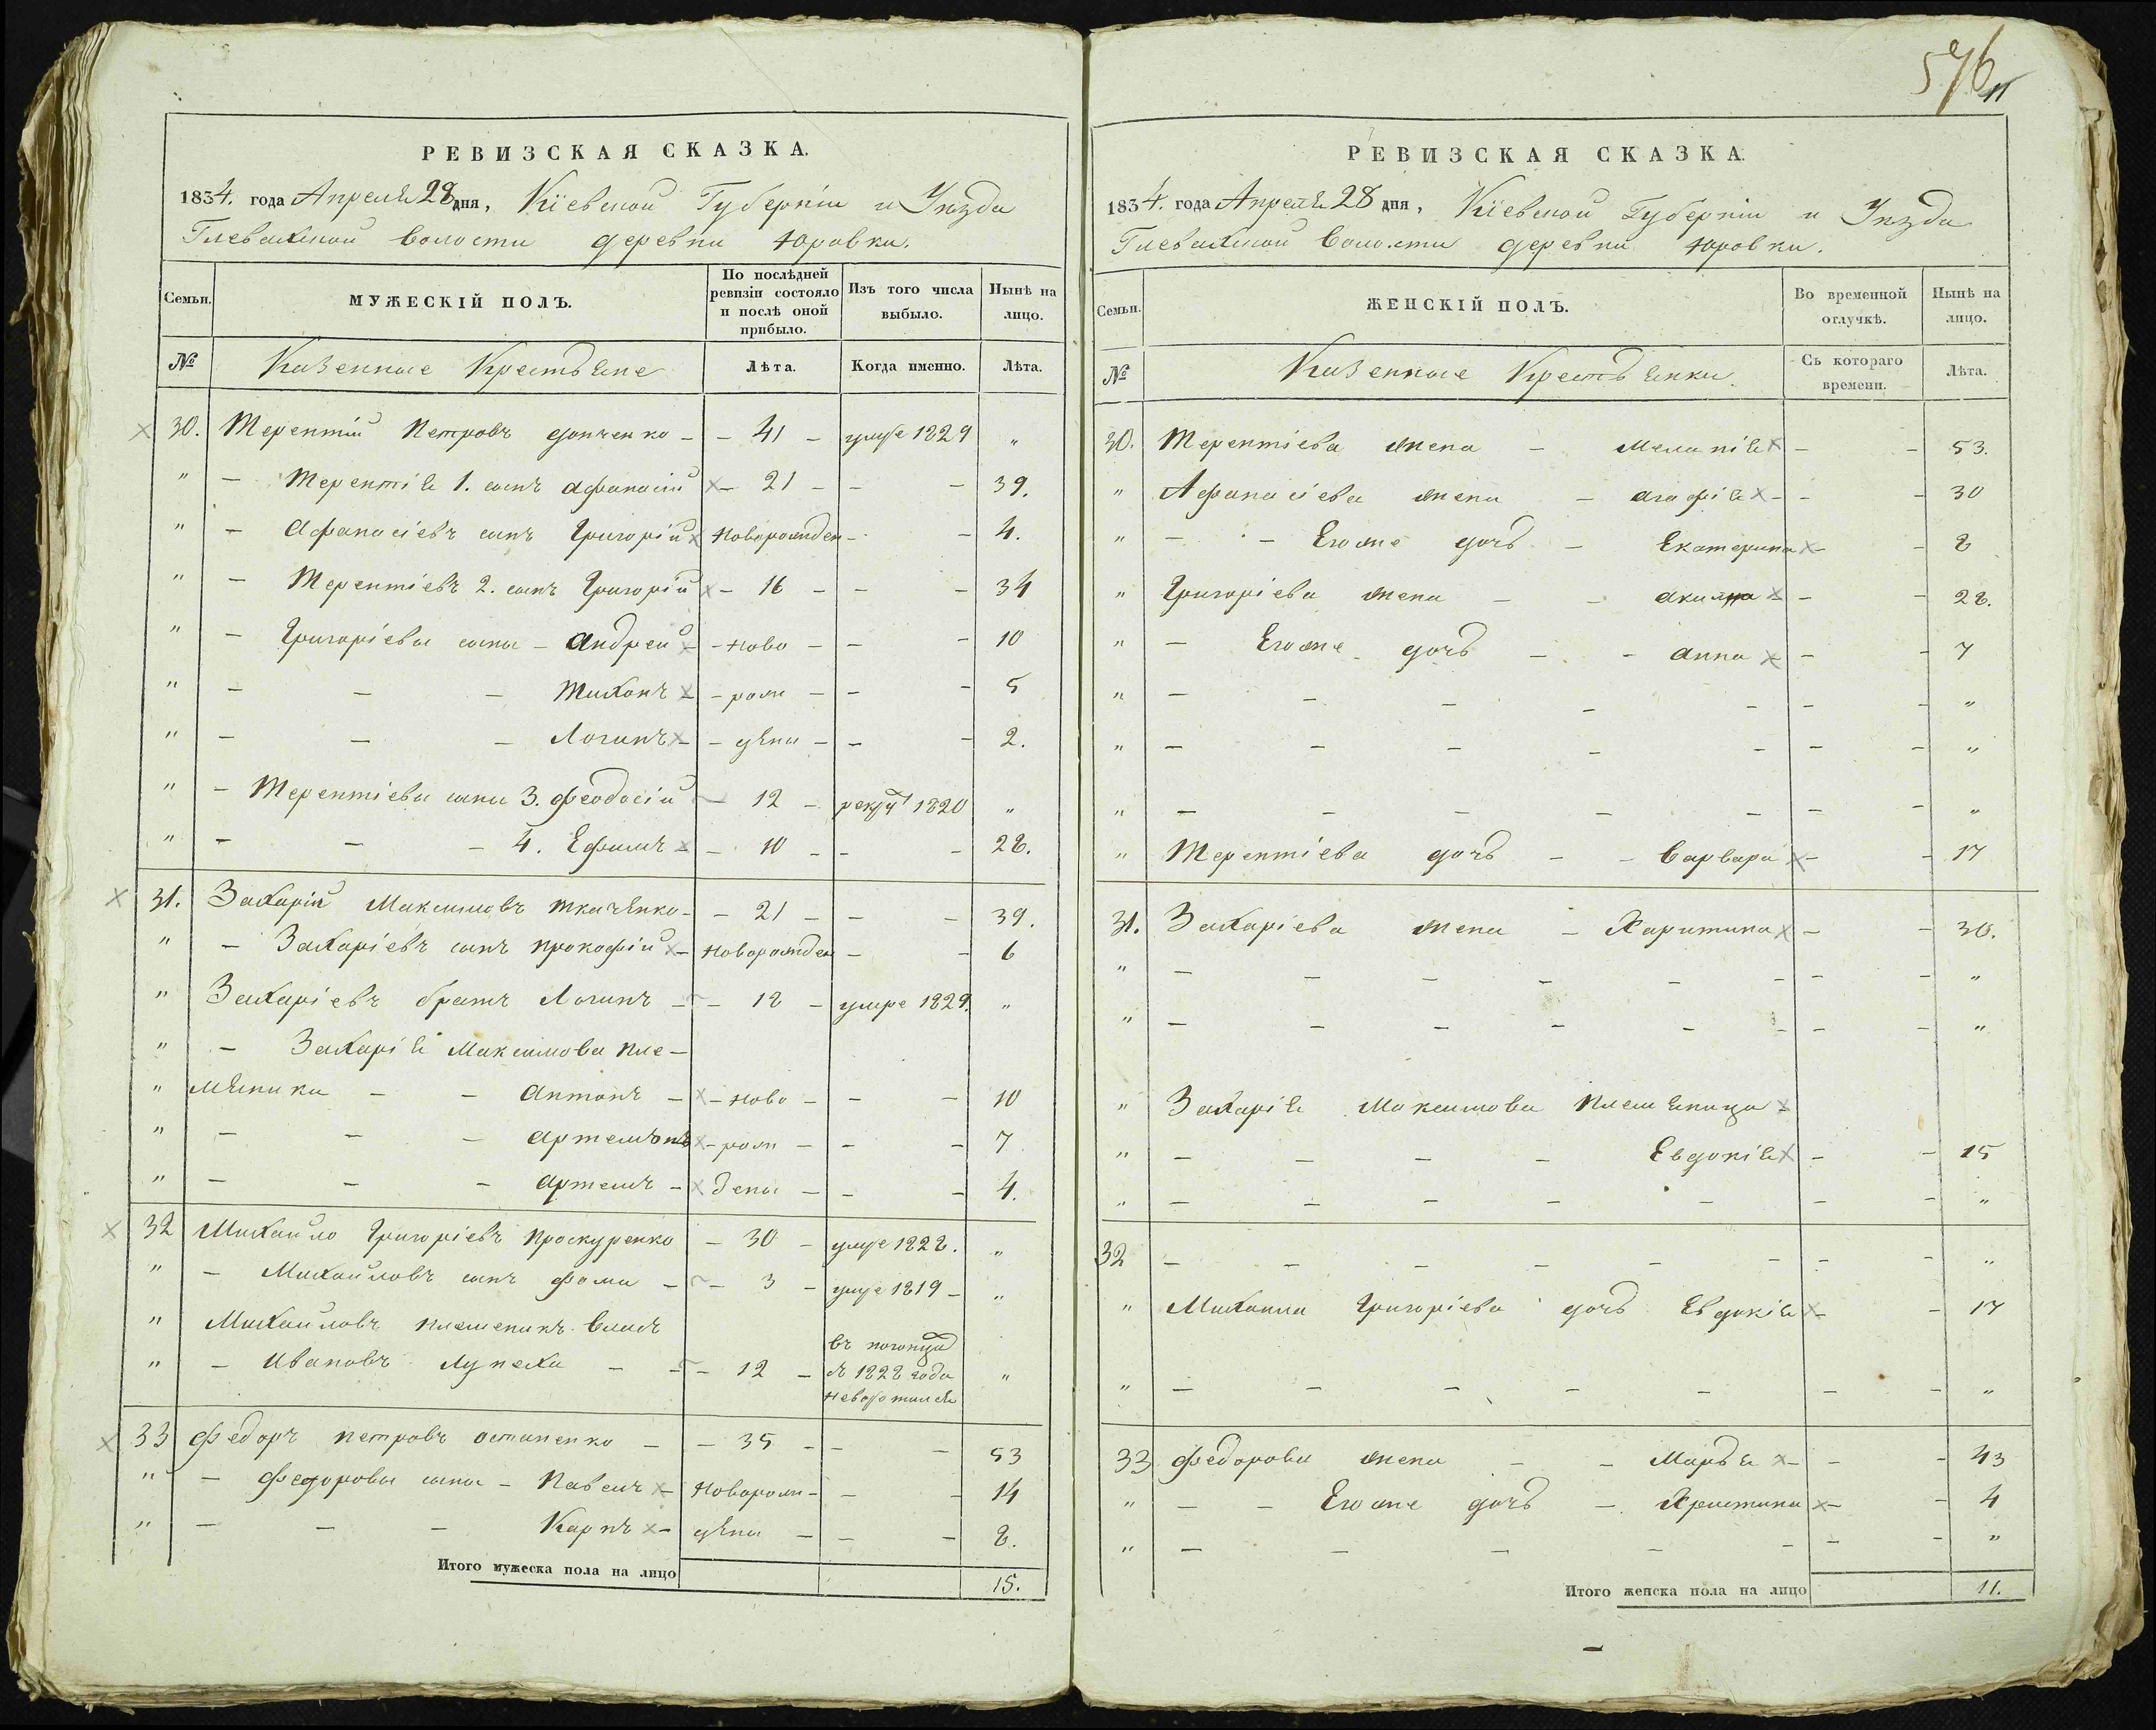 РЕВИЗСКАЯ СКАЗКА.
1834. года Апреля 28 дня, Кіевской Губерніи и Уѣзда
Глевахской волости деревни Юровки.
Семьи.
МУЖЕСКІЙ ПОЛЪ.
По послѣдней ревизіи состояло и послѣ оной прибыло.
Изъ того числа выбыло.
Нынѣ на лицо.
№ Казенные Крестьяне Лѣта. Когда именно. Лѣта.
30. Терентій Петровъ донченко - - 41 - умре 1829 "
" - Терентія 1. сынъ афанасій - 21 - - - 39.
" - афанасіевъ сынъ Григорій новорожден - - 4.
" - Терентіевъ 2. сынъ Григорій - 16 - - - 34
" - Григоріевы сыны - андрей - ново - - - 10
" - - - тихонъ - - рож - - - 5
" - - - Логинъ - - дены - - - 2.
" - Терентіевы сыны 3. феодосій - 12 - рекрут 1820 "
" - - - 4. Ефимъ - - 10 - - - 28.
31. Захарій Максимовъ ткаченко - - 21 - - - 39.
" - Захаріевъ сынъ прокофій - новорожден - - 6
" Захаріевъ братъ Логинъ - - 18 - умре 1829. "
" - Захарія Максимова пле-
" мяники - - антонъ - - ново - - - 10
" - - - артемонъ - рож - - - 7
" - - - артемъ - дены - - - 4.
32 Михайло Григоріевъ проскуренко - 30 - умре 1828. "
" - Михайловъ сынъ фома - - 3 - умре 1819 - "
" Михайловъ племеникъ власъ
въ погонцах
" - ивановъ Лупеха - - - 12 - съ 1828 года "
неворотился
33 федоръ петровъ остапенко - - 35 - - - 53
" - федоровы сыны - павелъ - новорож - - - 14
" - - - Карпъ - дены - - - 8.
Итого мужеска пола на лицо 15.
576
11
РЕВИЗСКАЯ СКАЗКА.
1834. года Апреля 28 дня, Кіевской Губерніи и Уѣзда
Глевахской волости деревни Юровки.
Семьи.
ЖЕНСКІЙ ПОЛЪ.
Во временной отлучкѣ.
Нынѣ на лицо.
№ Казенные Крестьянки. Съ котораго времени. Лѣта.
30. Терентіева жена - Меланія - - 53.
" Афанасіева жена - агафія - - - 30
" - - Егоже дочь - Екатерина - - 8
" Григоріева жена - - - - 28.
" - Егоже дочь - - анна - - 7
" - - - - - - - "
" - - - - - - - "
" - - - - - - - "
" Терентіева дочь - - варвара - - 17
31. Захаріева жена - Харитина - - 30.
" - - - - - - - "
" - - - - - - - "
" Захарія Максимова племяница -
" - - - - Евдокія - - 15
" - - - - - - - "
32 - - - - - - - "
" Михаила Григоріева дочь Евдокія - - 17
" - - - - - - - "
33 федорова жена - - Марья - - - 43
" - - Егоже дочь - Христина - - 4
" - - - - - - - "
Итого женска пола на лицо 11.